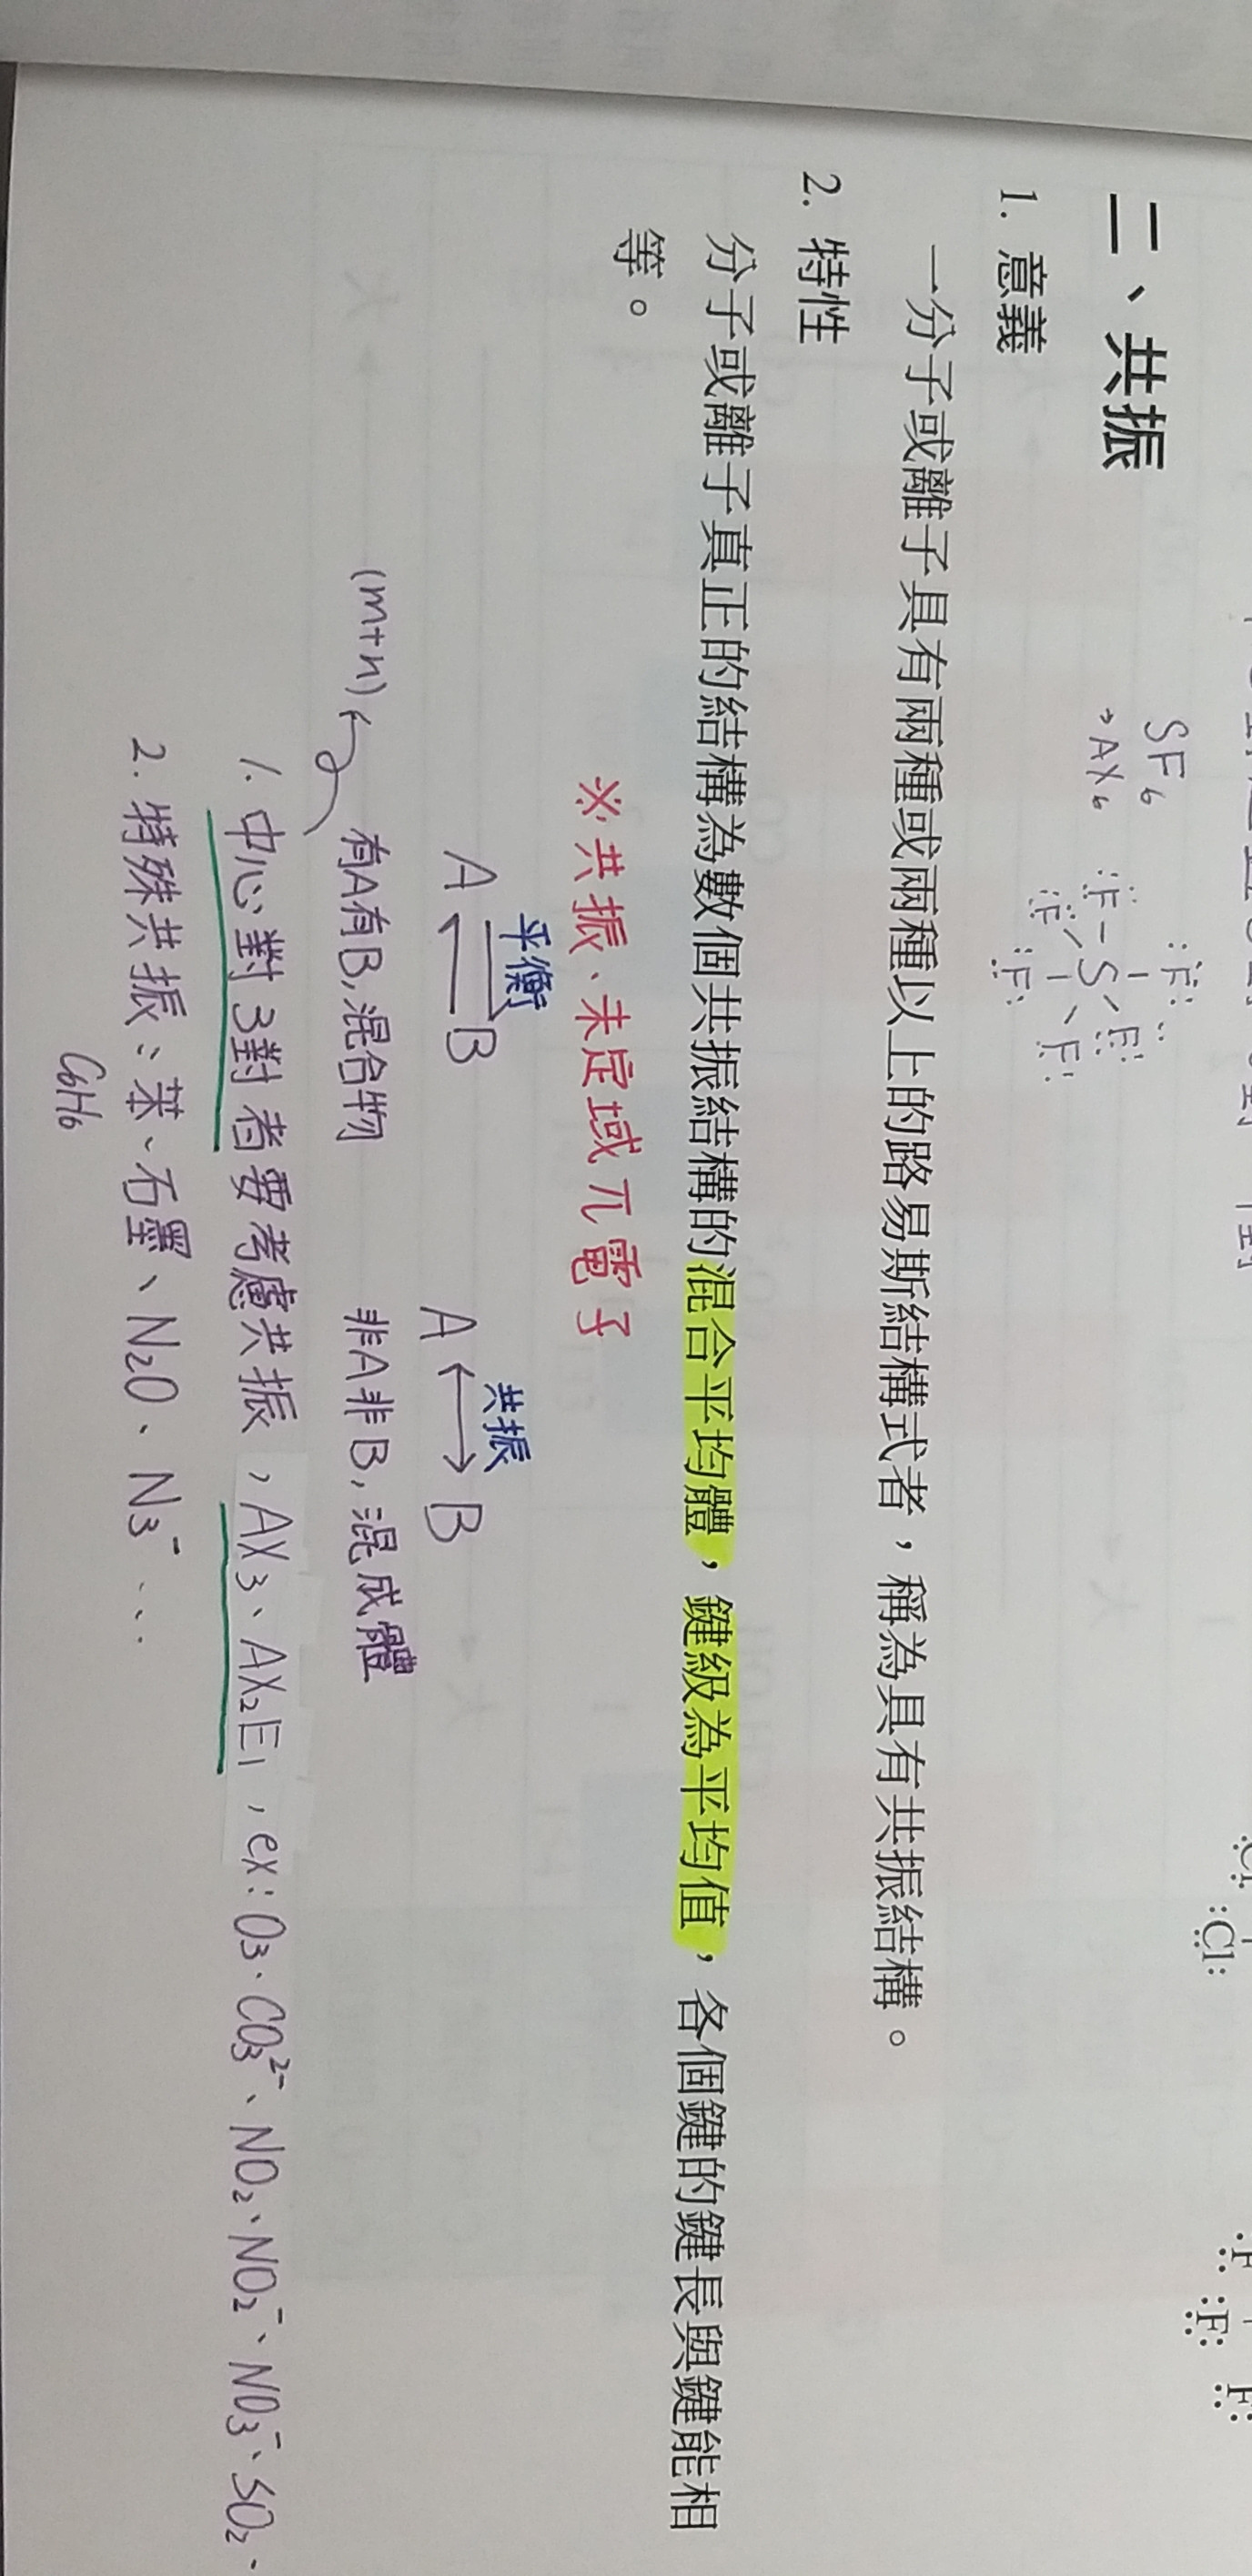 SF₆
→AX₆
:F: :F-S-F: :F: :F: F:
:Cl:
:F: F:
二、共振
1. 意義
一分子或離子具有兩種或兩種以上的路易斯結構式者，稱為具有共振結構。
2. 特性
分子或離子真正的結構為數個共振結構的混合平均體，鍵級為平均值，各個鍵的鍵長與鍵能相
等。
※共振、未定域π電子
平衡 共振
A ⇌ B A ↔ B
(m+n) 有A有B,混合物 非A非B,混成體
1. 中心對3對者要考慮共振，AX₃、AX₂E₁，ex:O₃、CO₃²⁻、NO₂、NO₂⁻、NO₃⁻、SO₂、
2. 特殊共振：苯、石墨、N₂O、N₃⁻...
C₆H₆